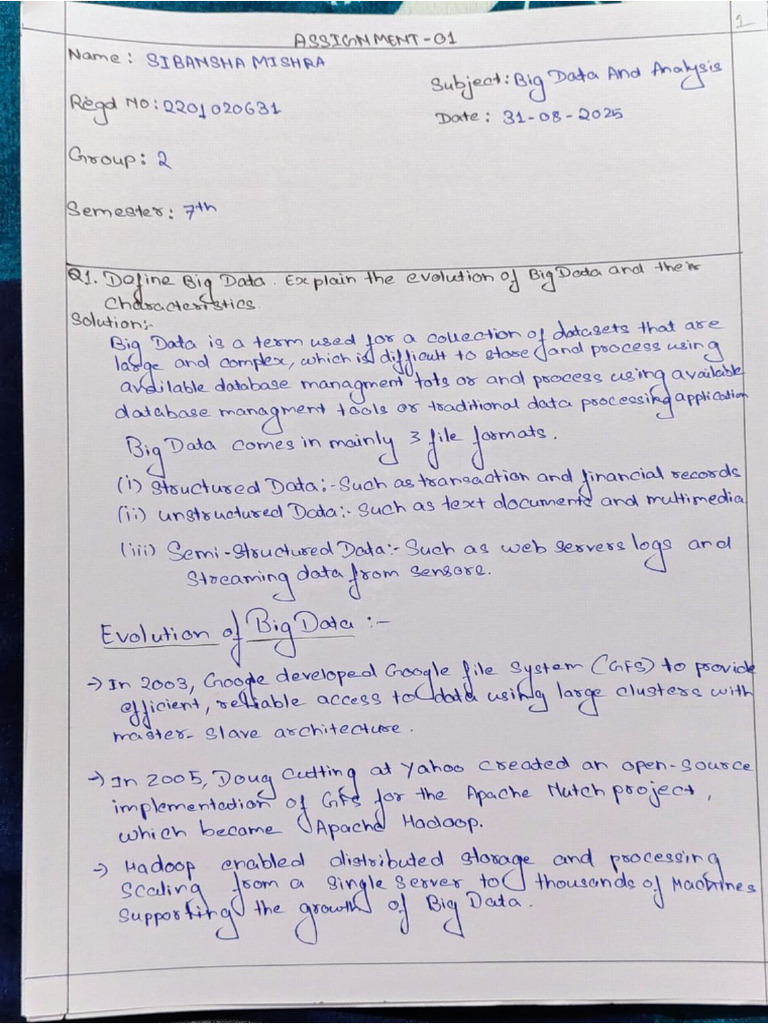 1
ASSIGNMENT-01
Name: SIBANSHA MISHRA
Subject: Big Data And Analysis
Regd No: 2201020631
Date: 31-08-2025
Group: 2
Semester: 7th
Q1. Define Big Data. Explain the evolution of Big Data and their
Characteristics.
Solution:-
Big Data is a term used for a collection of datasets that are
large and complex, which is difficult to store and process using
available database managment tots or and process using available
database managment tools or traditional data processing application
Big Data comes in mainly 3 file formats.
(i) Structured Data:- Such as transaction and financial records
(ii) unstructured Data:- Such as text documents and multimedia
(iii) Semi-Structured Data:- Such as web servers logs and
Streaming data from sensors.
Evolution of Big Data :-
→ In 2003, Google developed Google file System (GFS) to provide
efficient, reliable access to data using large clusters with
master-slave architecture.
→ In 2005, Doug Cutting at Yahoo created an open-source
implementation of GFS for the Apache Nutch project,
which became Apache Hadoop.
→ Hadoop enabled distributed storage and processing
Scaling from a single server to thousands of Machines
Supporting the growth of Big Data.